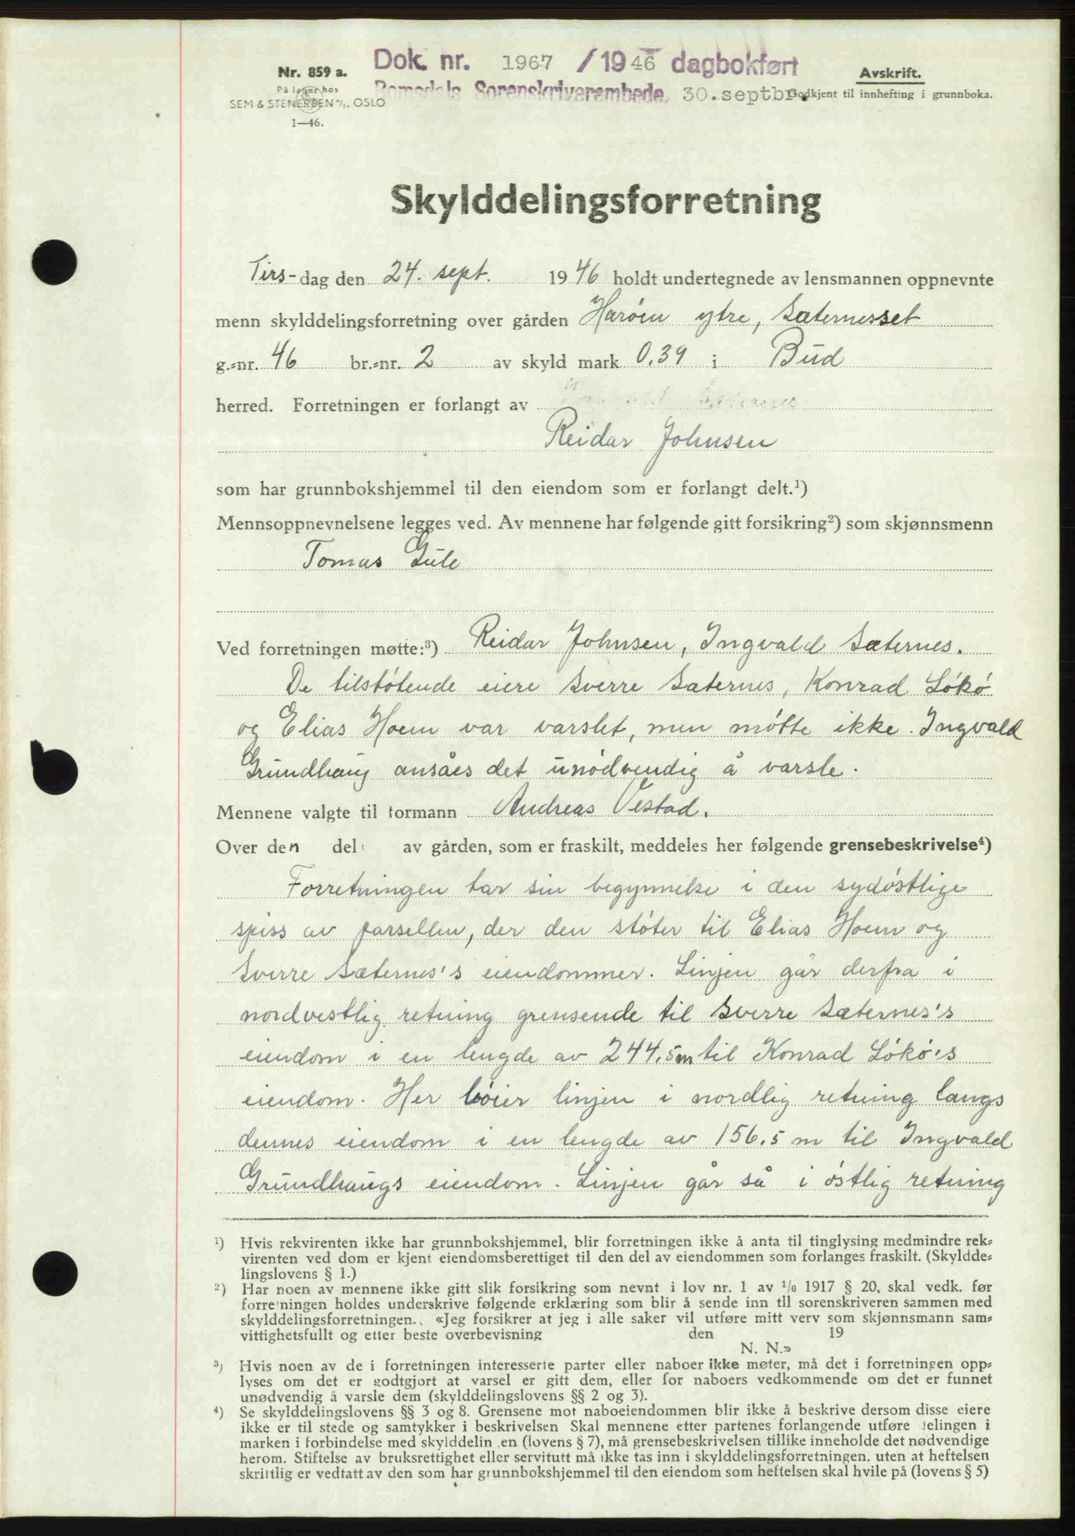 Dok. nr. 1967 / 1946 dagbokført
Nr. 859 a.
Avskrift.
På lager hos
Romsdals Sorenskriverembede, 30.septbr.
Godkjent til innhefting i grunnboka.
SEM & STENERSEN A/S, OSLO
1—46.
Skylddelingsforretning
Tirs-dag den 24. sept. 1946 holdt undertegnede av lensmannen oppnevnte
menn skylddelingsforretning over gården Harøin ytre, Sæternesset
g.-nr. 46 br.-nr. 2 av skyld mark 0.39 i Bud
herred. Forretningen er forlangt av
Reidar Johnsen
som har grunnbokshjemmel til den eiendom som er forlangt delt.¹)
Mennsoppnevnelsene legges ved. Av mennene har følgende gitt forsikring²) som skjønnsmenn
Tomas Gule
Ved forretningen møtte:³) Reidar Johnsen, Ingvald Sæternes.
De tilstøtende eiere Sverre Sæternes, Konrad Løkø
og Elias Hoem var varslet, men møtte ikke. Ingvald
Grundhaug ansåes det unødvendig å varsle.
Mennene valgte til formann Andreas Vestad.
Over den del av gården, som er fraskilt, meddeles her følgende grensebeskrivelse⁴)
Forretningen tar sin begynnelse i den sydøstlige
spiss av parsellen, der den støter til Elias Hoem og
Sverre Sæternes's eiendommer. Linjen går derfra i
nordvestlig retning grensende til Sverre Sæternes's
eiendom i en lengde av 244,5 m til Konrad Løkø's
eiendom. Her bøier linjen i nordlig retning langs
dennes eiendom i en lengde av 156,5 m til Ingvald
Grundhaugs eiendom. Linjen går så i østlig retning
¹) Hvis rekvirenten ikke har grunnbokshjemmel, blir forretningen ikke å anta til tinglysing medmindre rek-
virenten ved dom er kjent eiendomsberettiget til den del av eiendommen som forlanges fraskilt. (Skyldde-
lingslovens § 1.)
²) Har noen av mennene ikke gitt slik forsikring som nevnt i lov nr. 1 av 1/6 1917 § 20, skal vedk. før
forretningen holdes underskrive følgende erklæring som blir å sende inn til sorenskriveren sammen med
skylddelingsforretningen. «Jeg forsikrer at jeg i alle saker vil utføre mitt verv som skjønnsmann sam-
vittighetsfullt og etter beste overbevisning den 19
N. N.»
³) Hvis noen av de i forretningen interesserte parter eller naboer ikke møter, må det i forretningen opp-
lyses om det er godtgjort at varsel er gitt dem, eller for naboers vedkommende om det er funnet
unødvendig å varsle dem (skylddelingslovens §§ 2 og 3).
⁴) Se skylddelingslovens §§ 3 og 8. Grensene mot naboeiendommen blir ikke å beskrive dersom disse eiere
ikke er til stede og samtykker i beskrivelsen Skal mennene etter partenes forlangende utføre delingen i
marken i forbindelse med skylddelingen (lovens § 7), må grensebeskrivelsen tillike inneholde det nødvendige
herom. Stiftelse av bruksrettighet eller servitutt må ikke tas inn i skylddelingsforretningen, uten at heftelsen
skriftlig er vedtatt av den som har grunnbokshjemmel til den eiendom som heftelsen skal hvile på (lovens § 5)